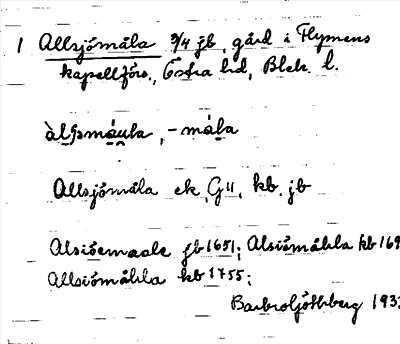 1 Allsjömåla 3/4 jb, gård i Flymens
kapellförs., Östra hd, Blek. l.
àlʃsmáula, -måla
Allsjömåla ek, G11, kb. jb
Alsiöemaale jb 1651; Alsiömåhla kb 169
Allsiömåhla kb 1755;
Barbro Ljöthberg 193